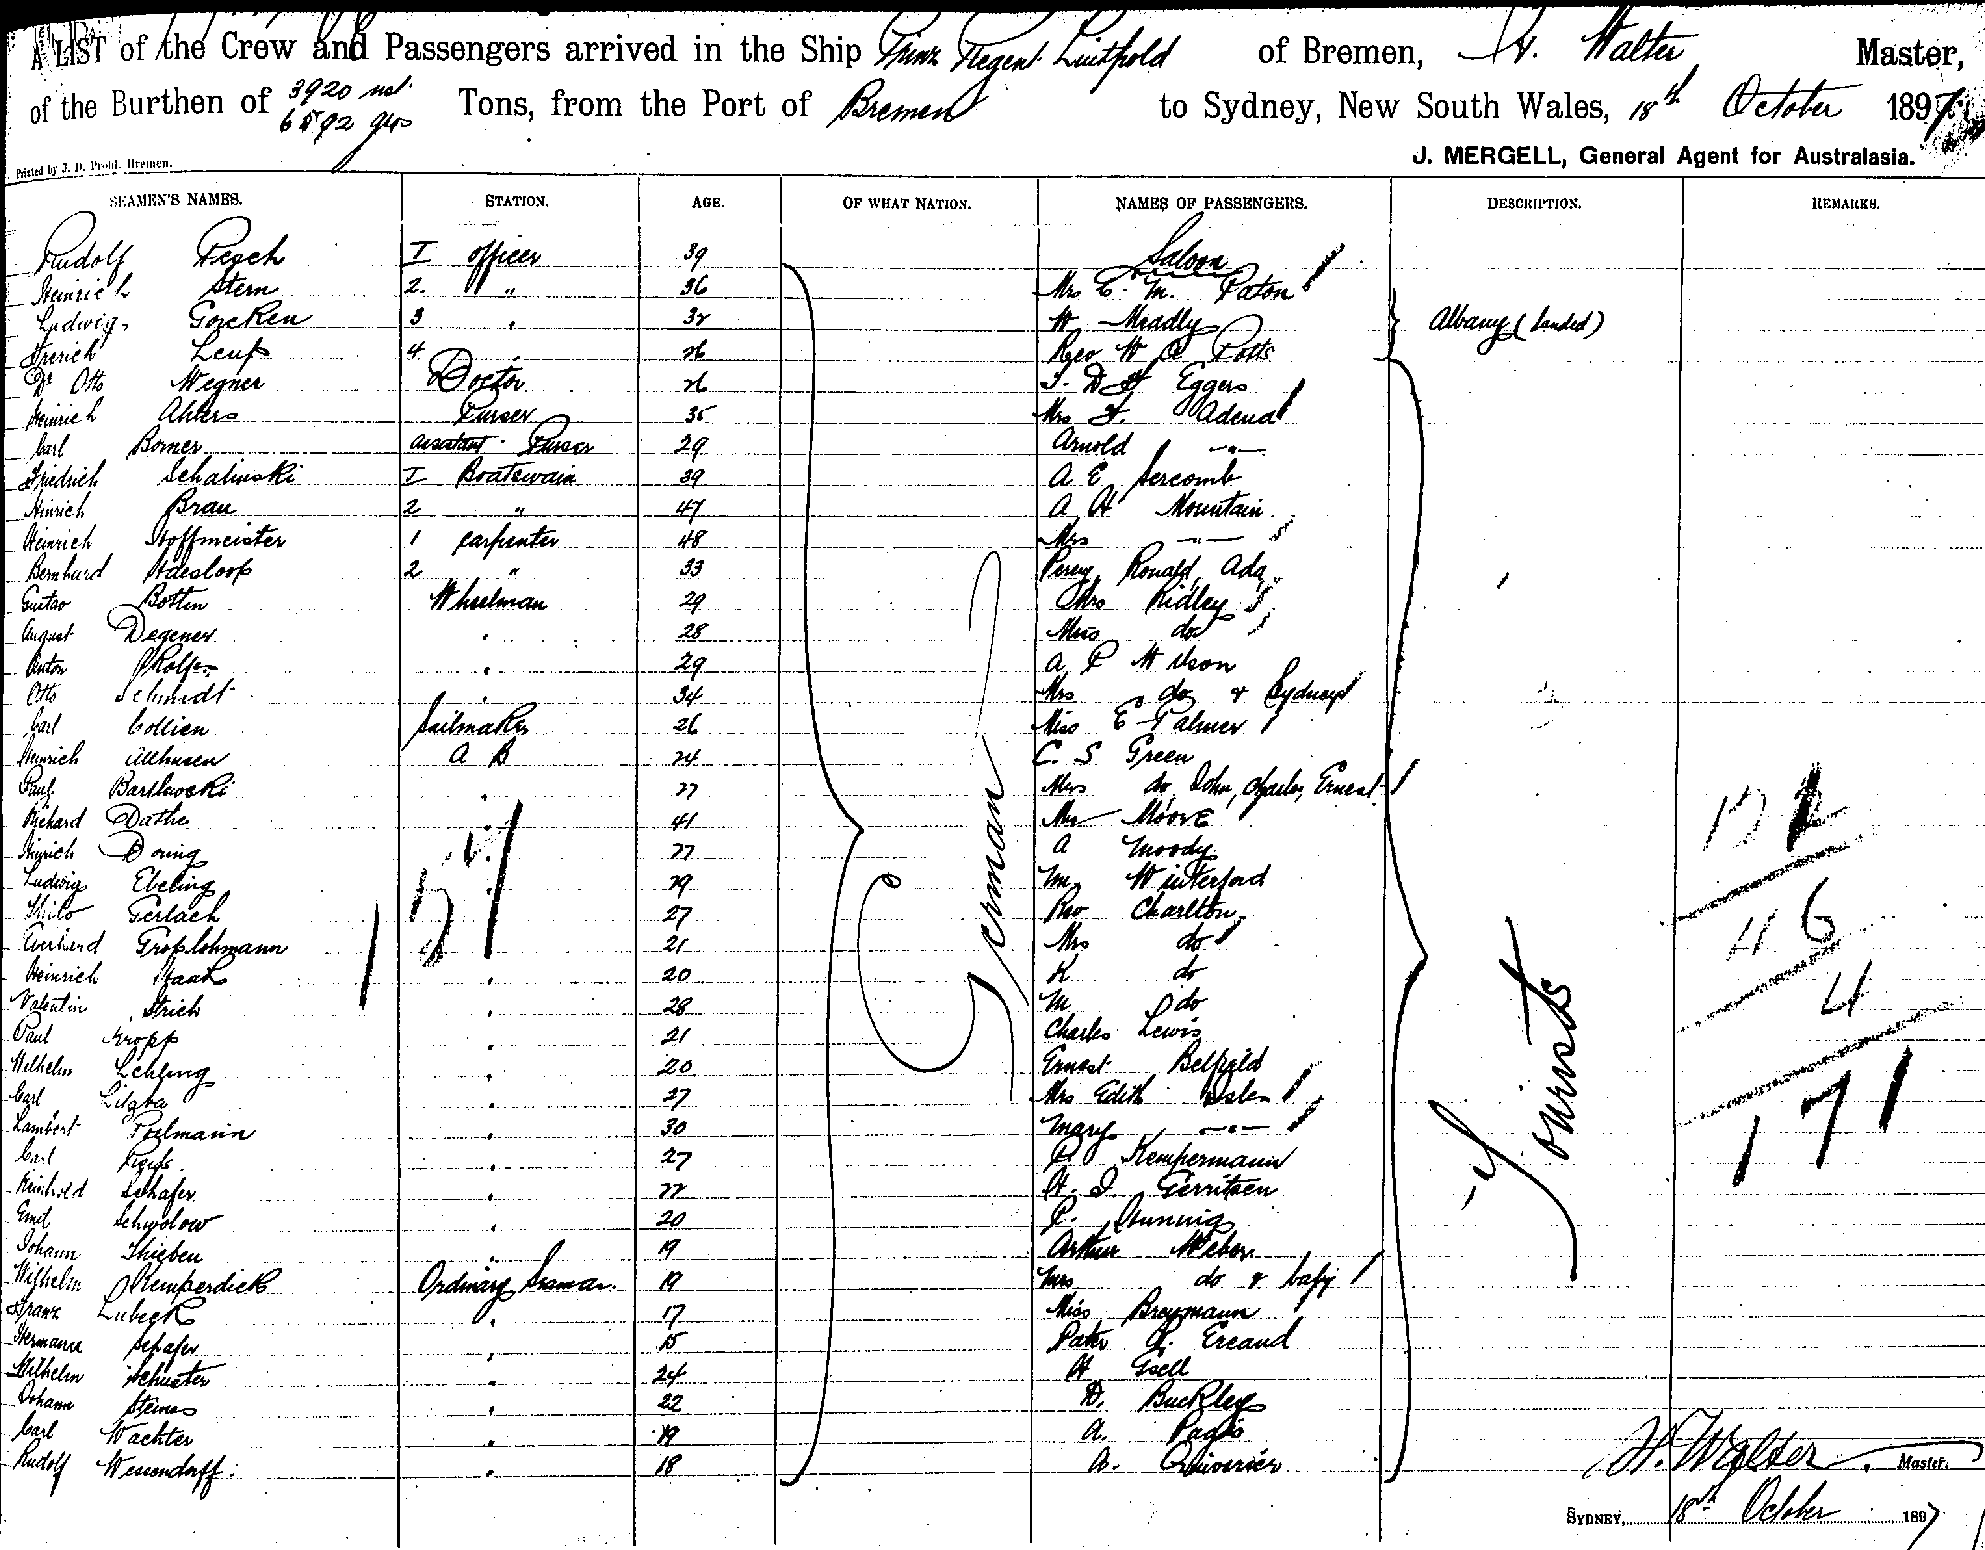 A LIST of the Crew and Passengers arrived in the Ship Prinz Regent Luitpold of Bremen, H. Walter Master,
of the Burthen of 3920 net 6592 gros Tons, from the Port of Bremen to Sydney, New South Wales, 18th October 1897
J. MERGELL, General Agent for Australasia.
Printed by J. D. Prohl. Bremen.
SEAMEN'S NAMES. STATION. AGE. OF WHAT NATION. NAMES OF PASSENGERS. DESCRIPTION. REMARKS.
Rudolf Pesch I officer 39 Saloon
Heinrich Stern 2. " 36 Mrs E. M. Paton
Ludwig Goecken 3 " 32 Albany (landed)
Leuss 4 " 26 Rev W Potts
Dr Otto Wegner Doctor 26 Eggers
Heinrich Ahlers Purser 35 Mrs F. Adena
Carl Borner assistant Purser 29 Arnold -"-
Friedrich Schalinski I Boatswain 39 A E Sercomb
Hinrich Brau 2 " 47 A H Mountain
Heinrich Hoffmeister 1 carpenter 48 Mrs -"-
Bernhard 2 " 33 Percy, Ronald, Ada
Gustav Botten Wheelman 29 Mrs Ridley
August Degener " 28 Miss do
Anton Rolfes " 29 A P Wilson
Otto Schmidt " 34 Mrs do & Sydney
Carl Collien Sailmaker 26 Miss E Palmer
Heinrich Allhusen A B 24 C. S Green
Paul Bartlewski " 27 Mrs do John, Charles, Ernest
Richard Dathe " 41 Moore
Hinrich Doring " 27 A Moody
Ludwig Ebeling " 29 M. Winterford
Thilo Gerlach " 27 Rev Charlton
Everhard Grosslohmann " 21 Mrs do
Heinrich Haak " 20 K do
Valentin " 28 M do
Paul Kropp " 21 Charles Lewis
Wilhelm Lehling " 20 Ernest Belfield
Carl " 27 Mrs Edith
Lambert Poelmann " 30 Mary -"-
Carl " 27 P Kempermann
Reinhold Schafer " 22 H. J Gerritsen
Emil Schwolow " 20
Johann Thieben " 19 Arthur Weber
Wilhelm Kemperdick Ordinary Seaman 19 Mrs do & baby
Franz Lubeck " 17 Miss Breymann
Hermann Schafer " 15 Pater Ercaud
Wilhelm Schuster " 24 H Gsell
Johann " 22 D. Buckley
Carl Wachter " 19 A. Pagis
Rudolf Wessendorff " 18 A.
German
Tourists
46
4
171
H. Walter Master.
SYDNEY, 18th October 1897